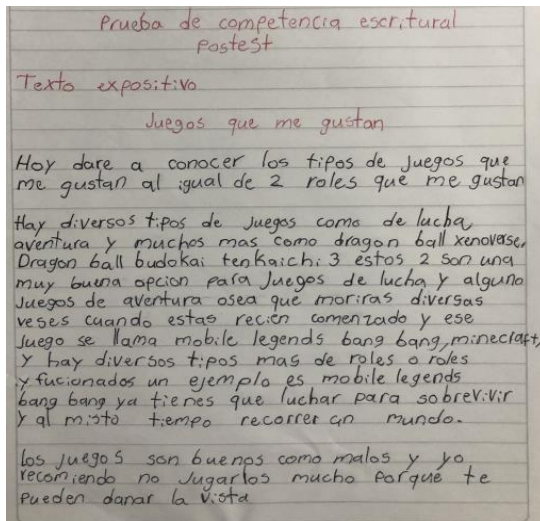 Prueba de competencia escritural
Postest
Texto expositivo
Juegos que me gustan
Hoy dare a conocer los tipos de juegos que
me gustan al igual de 2 roles que me gustan
Hay diversos tipos de juegos como de lucha,
aventura y muchos mas como dragon ball xenoverse,
Dragon ball budokai tenkaichi 3 estos 2 son una
muy buena opcion para juegos de lucha y alguno
juegos de aventura osea que moriras diversas
veses cuando estas recien comenzado y ese
juego se llama mobile legends bang bang, minecraft,
y hay diversos tipos mas de roles o roles
y fucionados un ejemplo es mobile legends
bang bang ya tienes que luchar para sobrevivir
y al misto tiempo recorrer un mundo.
los juegos son buenos como malos y yo
recomiendo no jugarlos mucho porque te
pueden danar la vista